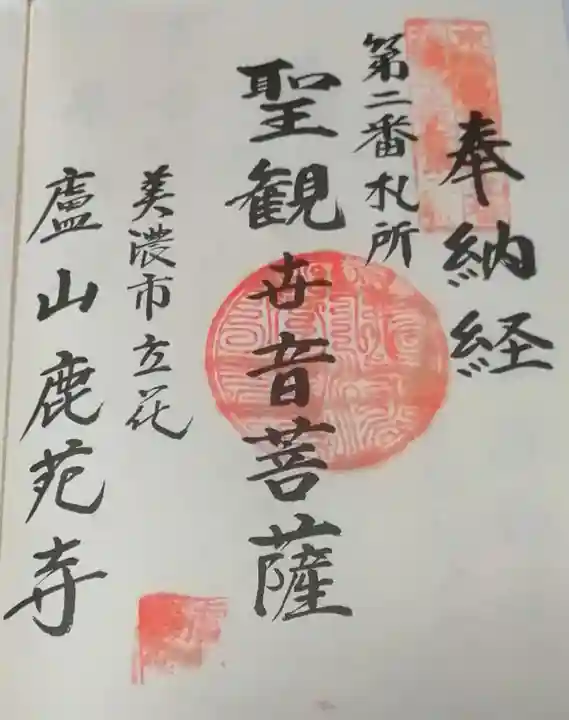 奉納経
第二番札所
聖観世音菩薩
美濃市立花
廬山鹿苑寺